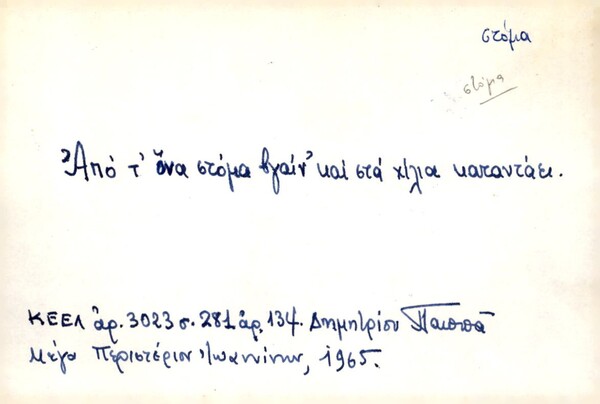 στόμα
στόμα
Ἀπό τ' ἕνα στόμα βγαίν' καί στά χίλια καταντάει.
ΚΕΕΛ ἀρ. 3023 σ. 281 ἀρ. 134. Δημητρίου Παππᾶ
Μέγα Περιστέριον Ἰωαννίνων, 1965.